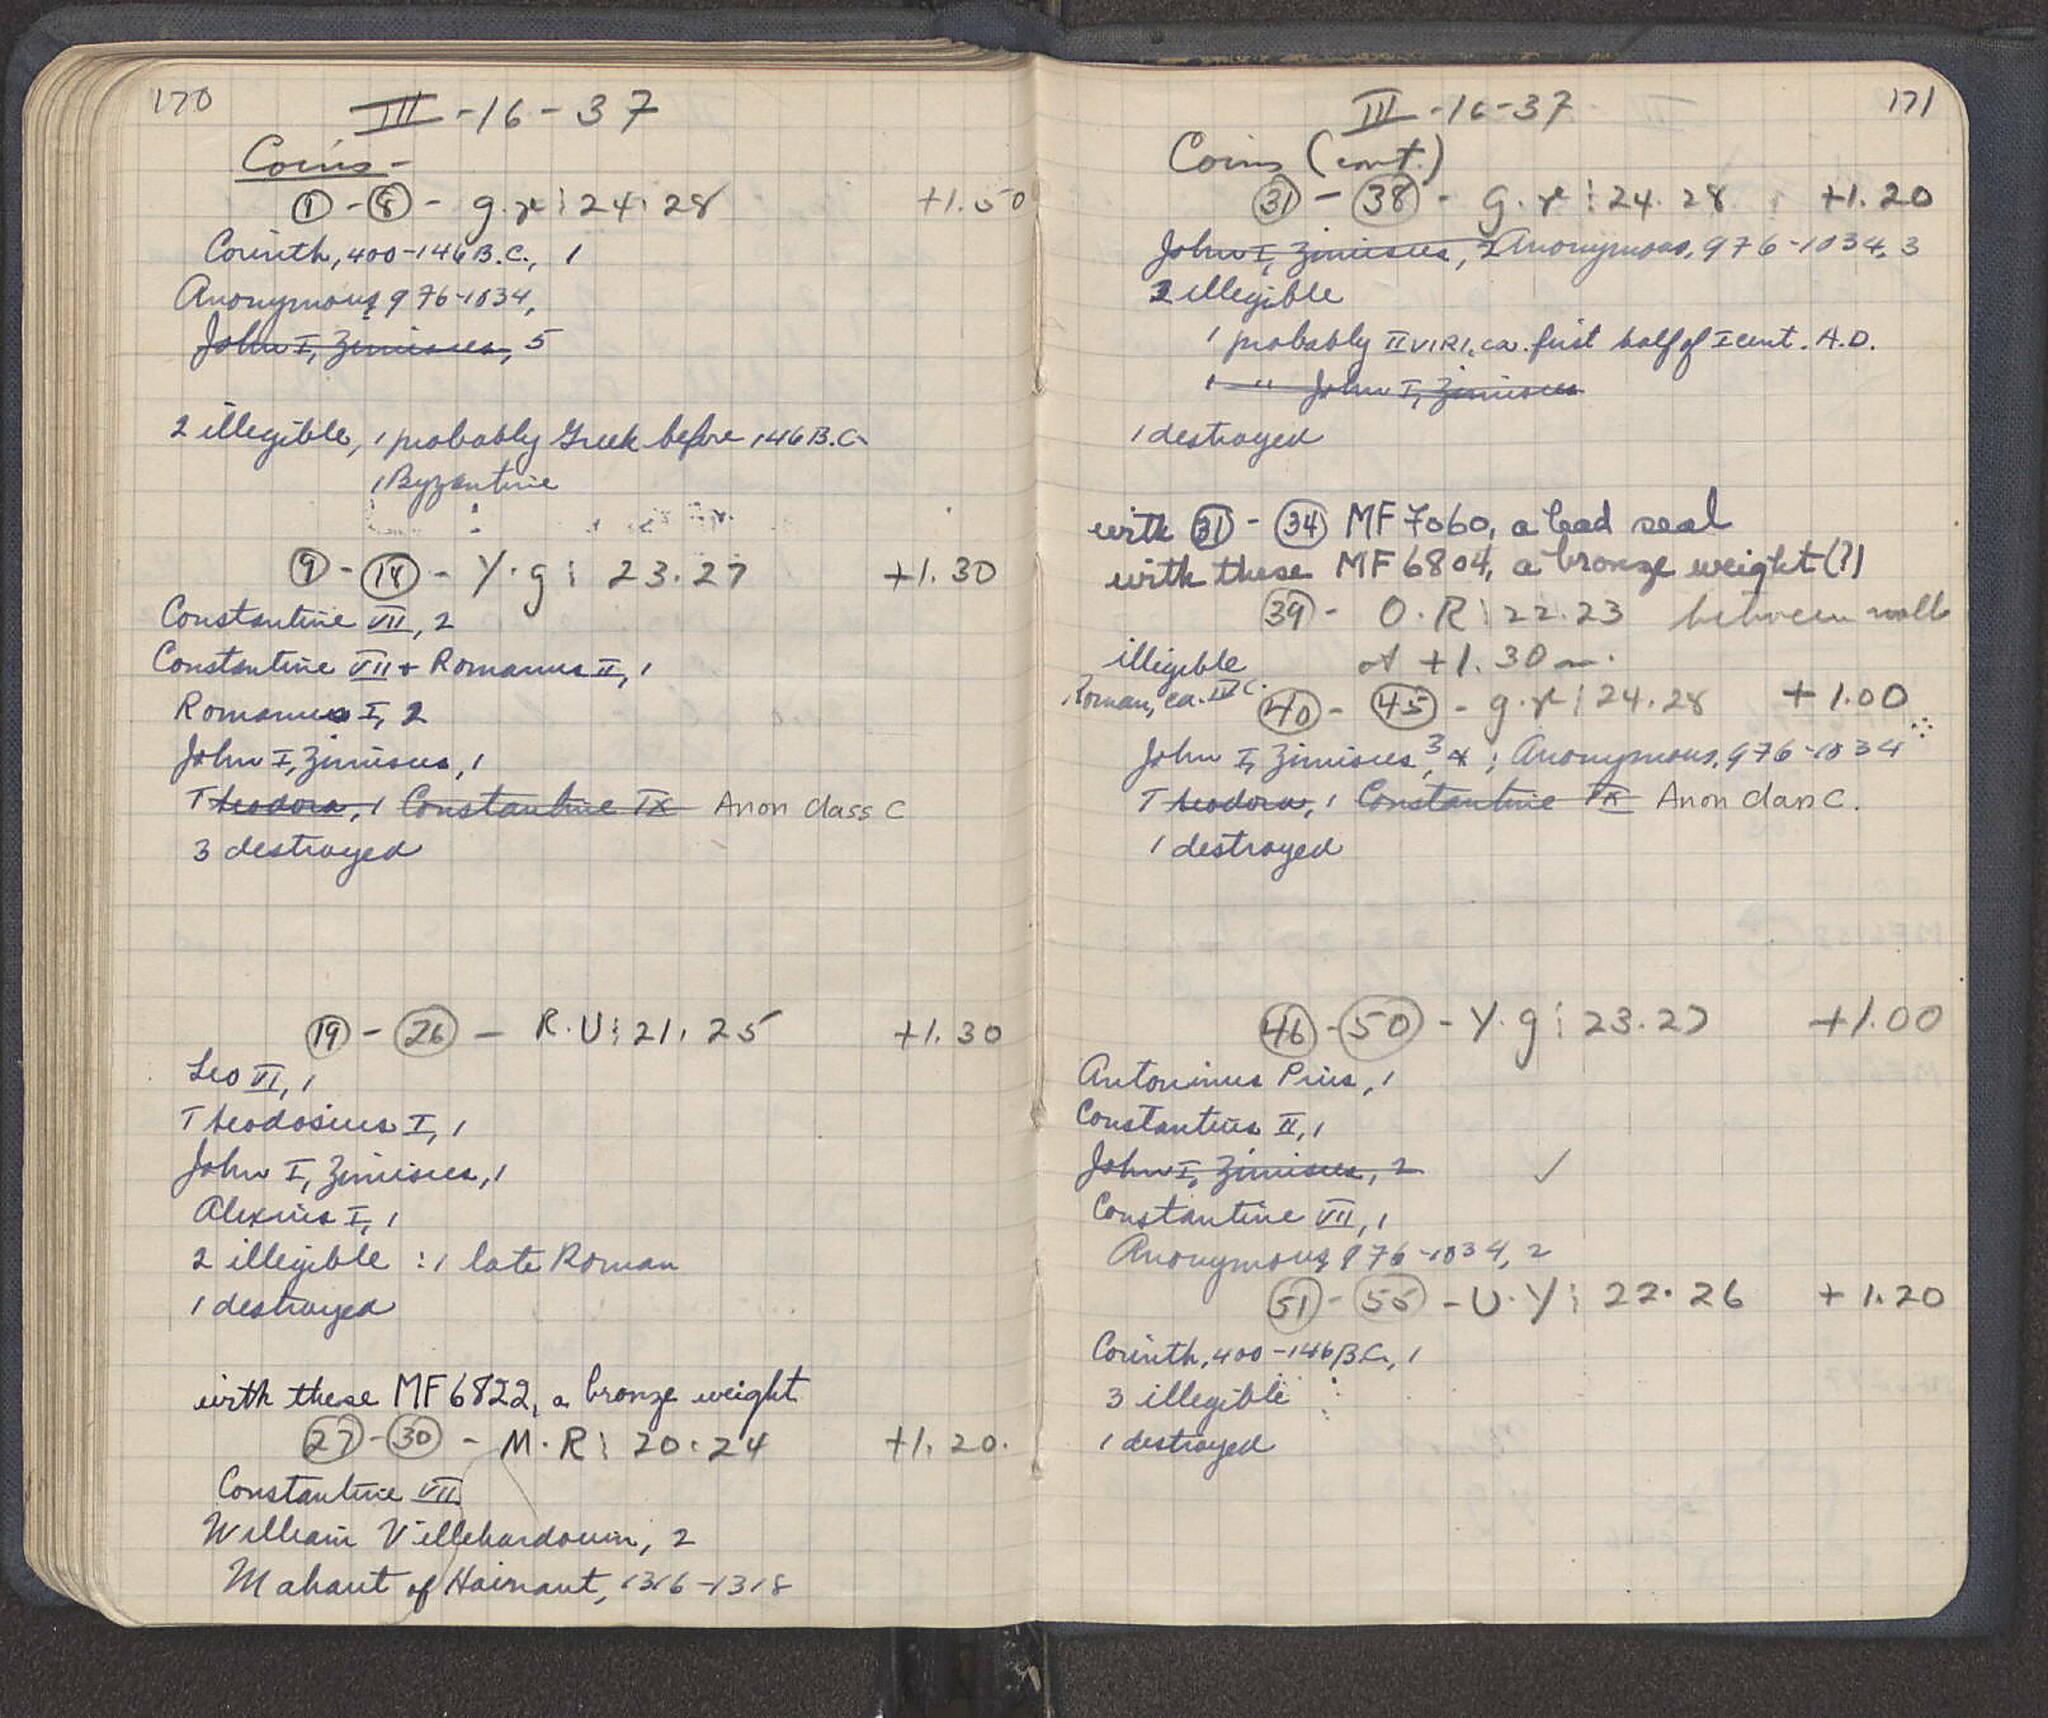 170
III-16-37
Coins-
① - ⑧ - g.r⁝24.28 +1.50
Corinth, 400-146 B.C., 1
Anonymous, 976-1034,
John I, Zimisces, 5
2 illegible, 1 probably Greek before 146 B.C.
1 Byzantine
⑨ - ⑱ - Y.g⁝ 23.27 +1.30
Constantine VII, 2
Constantine VII + Romanus II, 1
Romanus I, 2
John I, Zimisces, 1
Theodora, 1 Constantine IX Anon Class C
3 destroyed
⑲ - ㉖ - R.U⁝21.25 +1.30
Leo VI, 1
Theodosius I, 1
John I, Zimisces, 1
Alexius I, 1
2 illegible : 1 late Roman
1 destroyed
with these MF 6822, a bronze weight
㉗ - ㉚ - M.R⁝ 20.24 +1.20.
Constantine VII
William Villehardouin, 2
Mahaut of Hainaut, 1316-1318
171
III-16-37
Coins (cont.)
㉛ - ㊳ - g.r⁝24.28 +1.20
John I, Zimisces, 2 Anonymous, 976-1034, 3
2 illegible
1 probably II VIRI, ca. first half of I cent. A.D.
1 " John I, Zimisces
1 destroyed
with ㉛ - ㉞ MF 7060, a lead seal
with these MF 6804, a bronze weight(?)
㊴ - O.R⁝22.23 between walls
illegible at +1.30 m.
Roman, ca. IV c.
㊵ - ㊺ - g.r⁝24.28 +1.00
John I, Zimisces, 3 ; Anonymous, 976-1034
Theodora, 1 Constantine IX Anon Class C.
1 destroyed
㊻ - ㊿ - Y.g⁝23.27 +1.00
Antoninus Pius, 1
Constantius II, 1
John I, Zimisces, 2 ✓
Constantine VII, 1
Anonymous, 976-1034, 2
(51) - (55) - U.Y⁝ 22.26 +1.20
Corinth, 400-146 B.C., 1
3 illegible :
1 destroyed